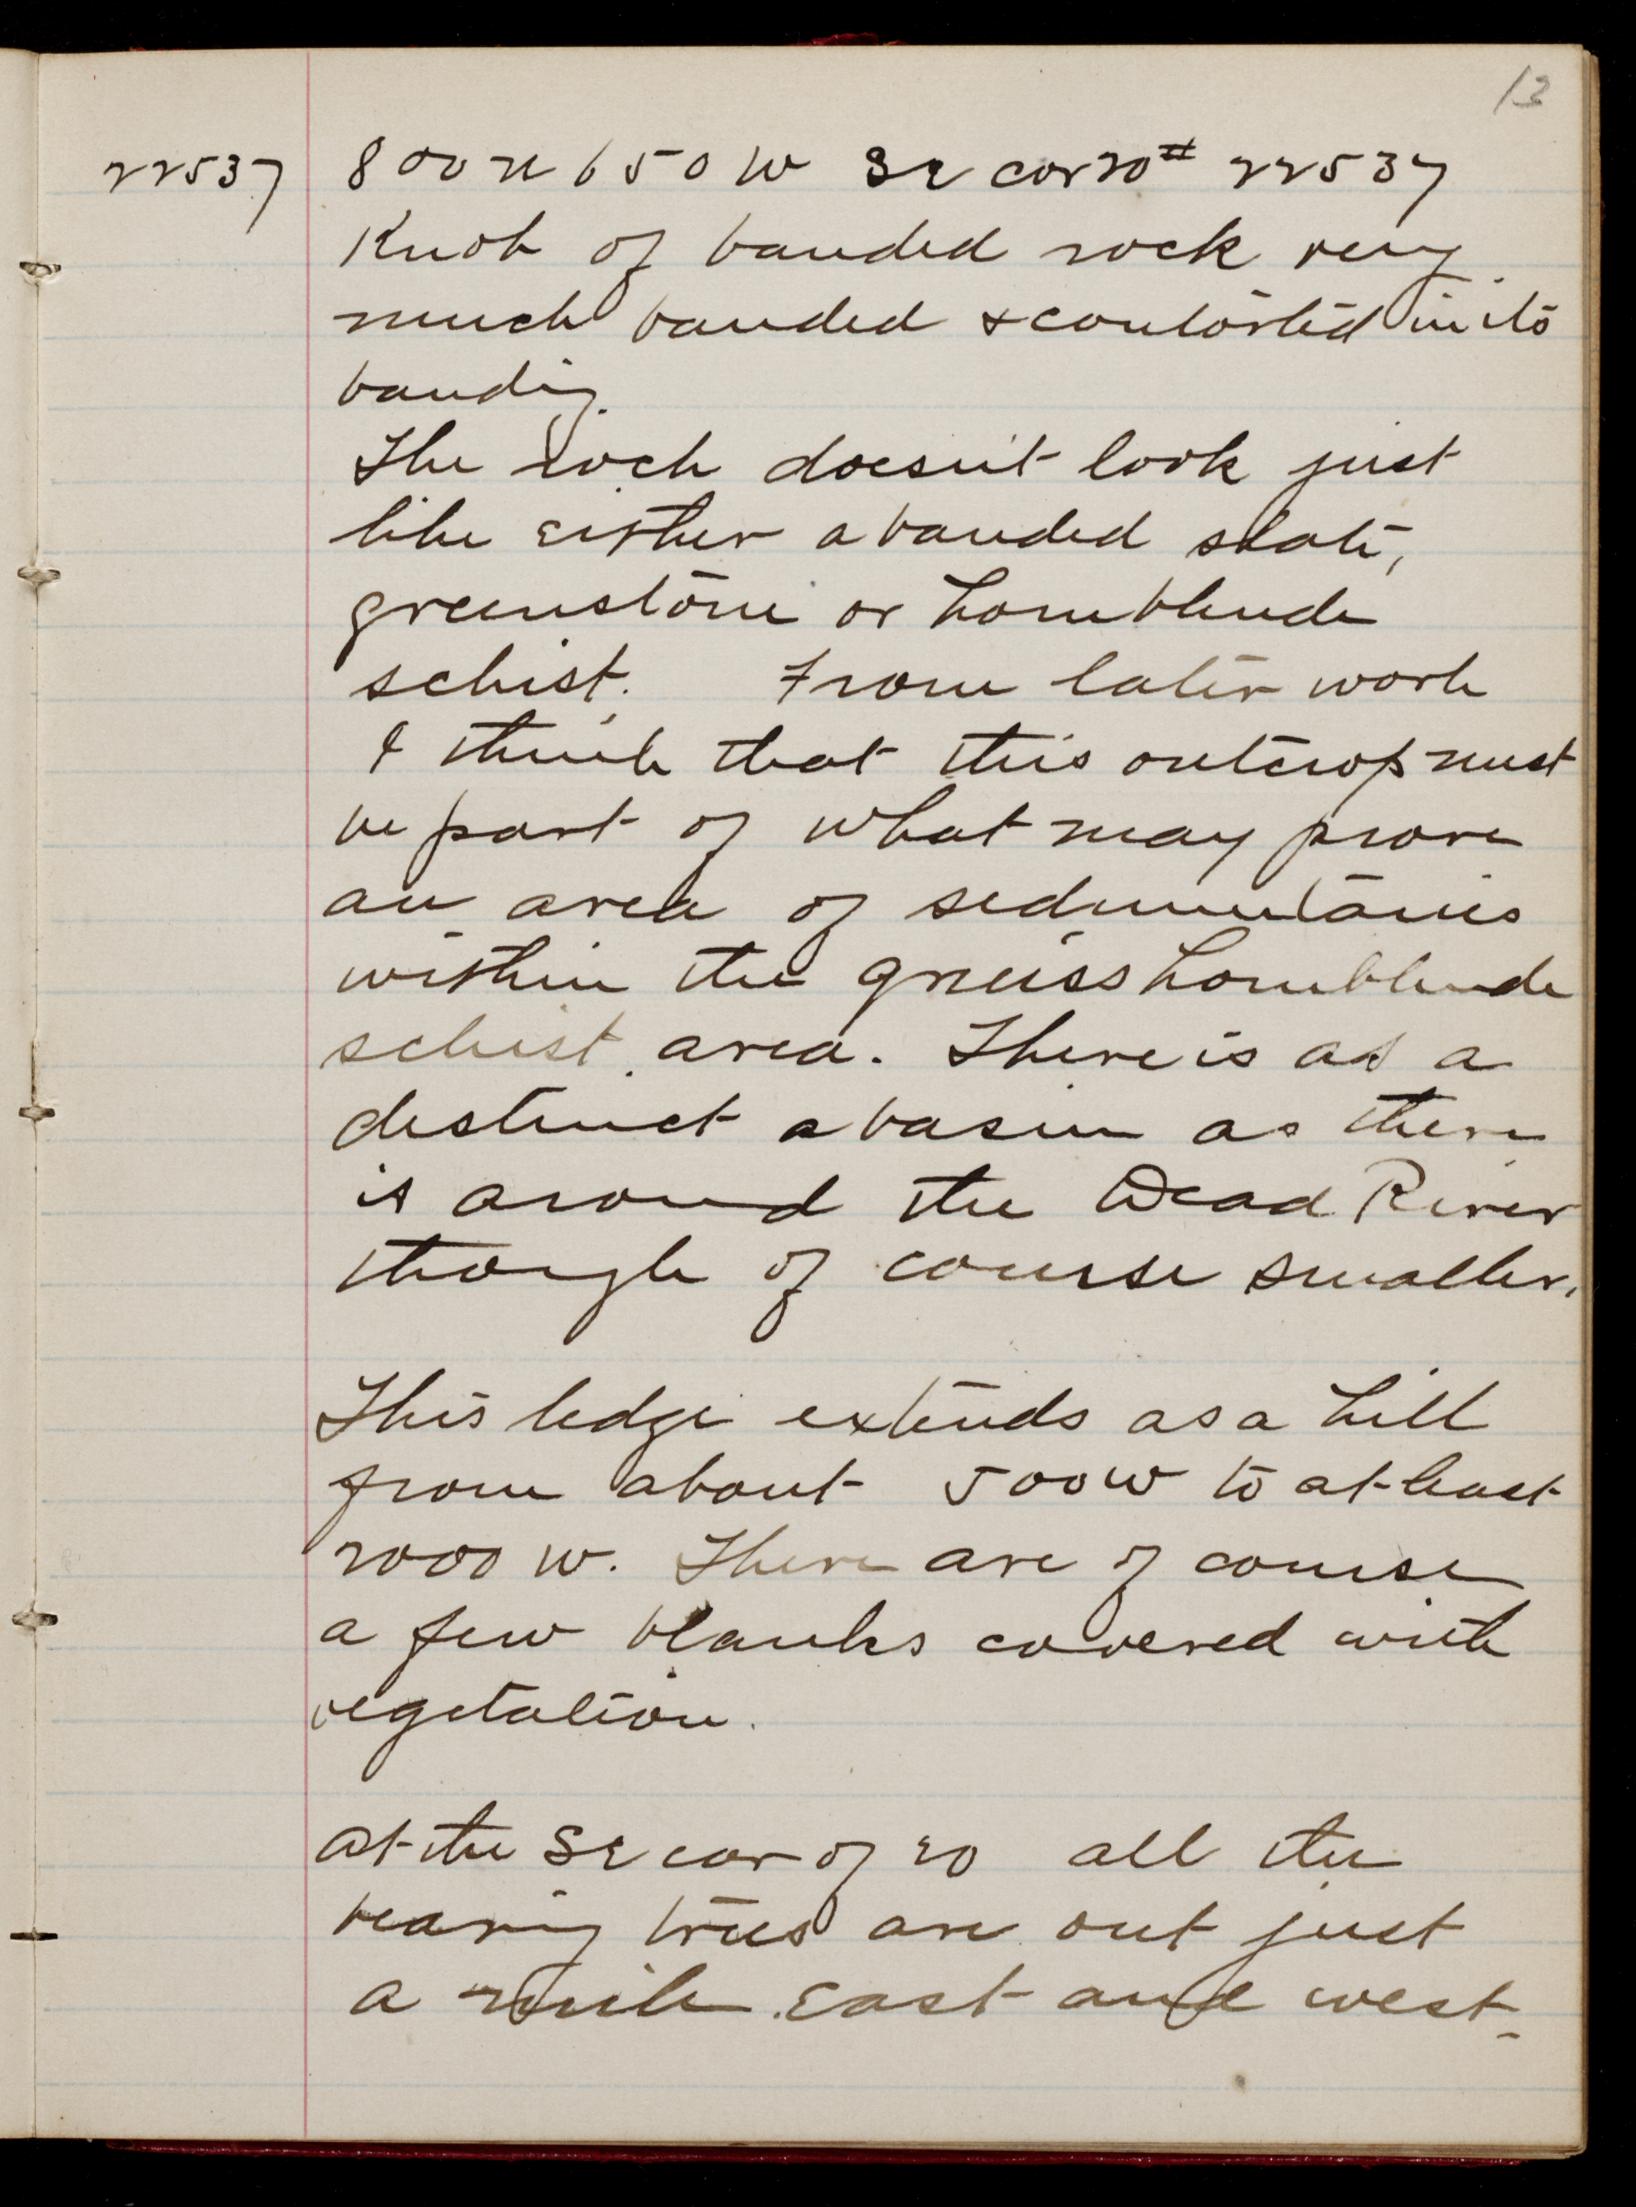 13
22537 800 N 650 W SE cor 20 # 22537
Knob of banded rock very
much banded & contorted in its
banding.
The rock doesn't look just
like either a banded slate,
greenstone or hornblende
schist. From later work
I think that this outcrop must
be part of what may prove
an area of sedimentaries
within the gneiss hornblende
schist area. There is as a
distinct a basin as there
is around the Dead River
though of course smaller.
This ledge extends as a hill
from about 500 W to at least
2000 W. There are of course
a few blanks covered with
vegetation.
At the SE cor of 20 all the
bearing trees are out just
a mile East and west